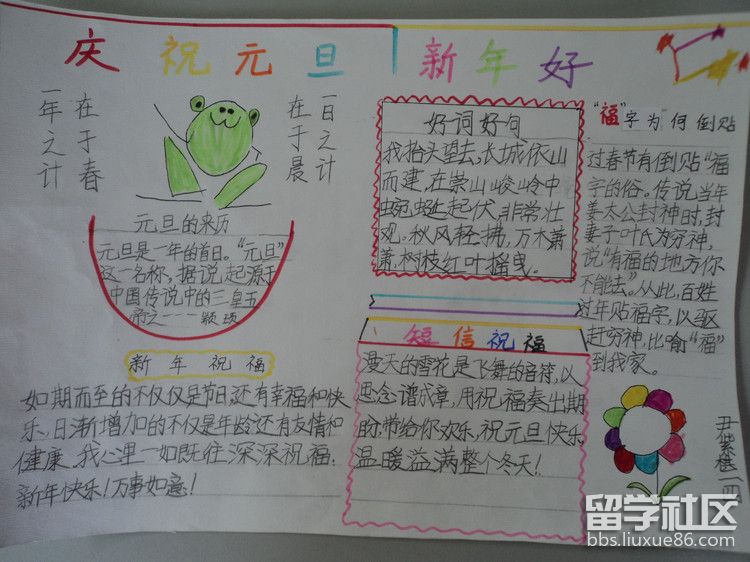 庆祝元旦 新年好
一年之计
在于春
一日之计
在于晨
元旦的来历
元旦是一年的首日。“元旦”
这一名称，据说起源于
中国传说中的三皇五
帝之一——颛顼
新年祝福
如期而至的不仅仅是节日,还有幸福和快
乐,日渐增加的不仅是年龄还有友情和
健康。我心里一如既往深深祝福:
新年快乐!万事如意!
好词好句
我抬头望去,长城依山
而建,在崇山峻岭中
蜿蜒起伏,非常壮
观。秋风轻拂,万木萧
萧,树枝红叶摇曳。
短信祝福
漫天的雪花是飞舞的音符,以
思念谱成章,用祝福奏出期
盼,带给你欢乐,祝元旦快乐
温暖溢满整个冬天!
“福”字为何倒贴
过春节有倒贴“福”
字的俗。传说当年
姜太公封神时,封
妻子叶氏为穷神,
说“有福的地方你
不能去”。从此,百姓
过年贴福字,以驱
赶穷神,比喻“福”
到我家。
留学社区
bbs.liuxue86.com